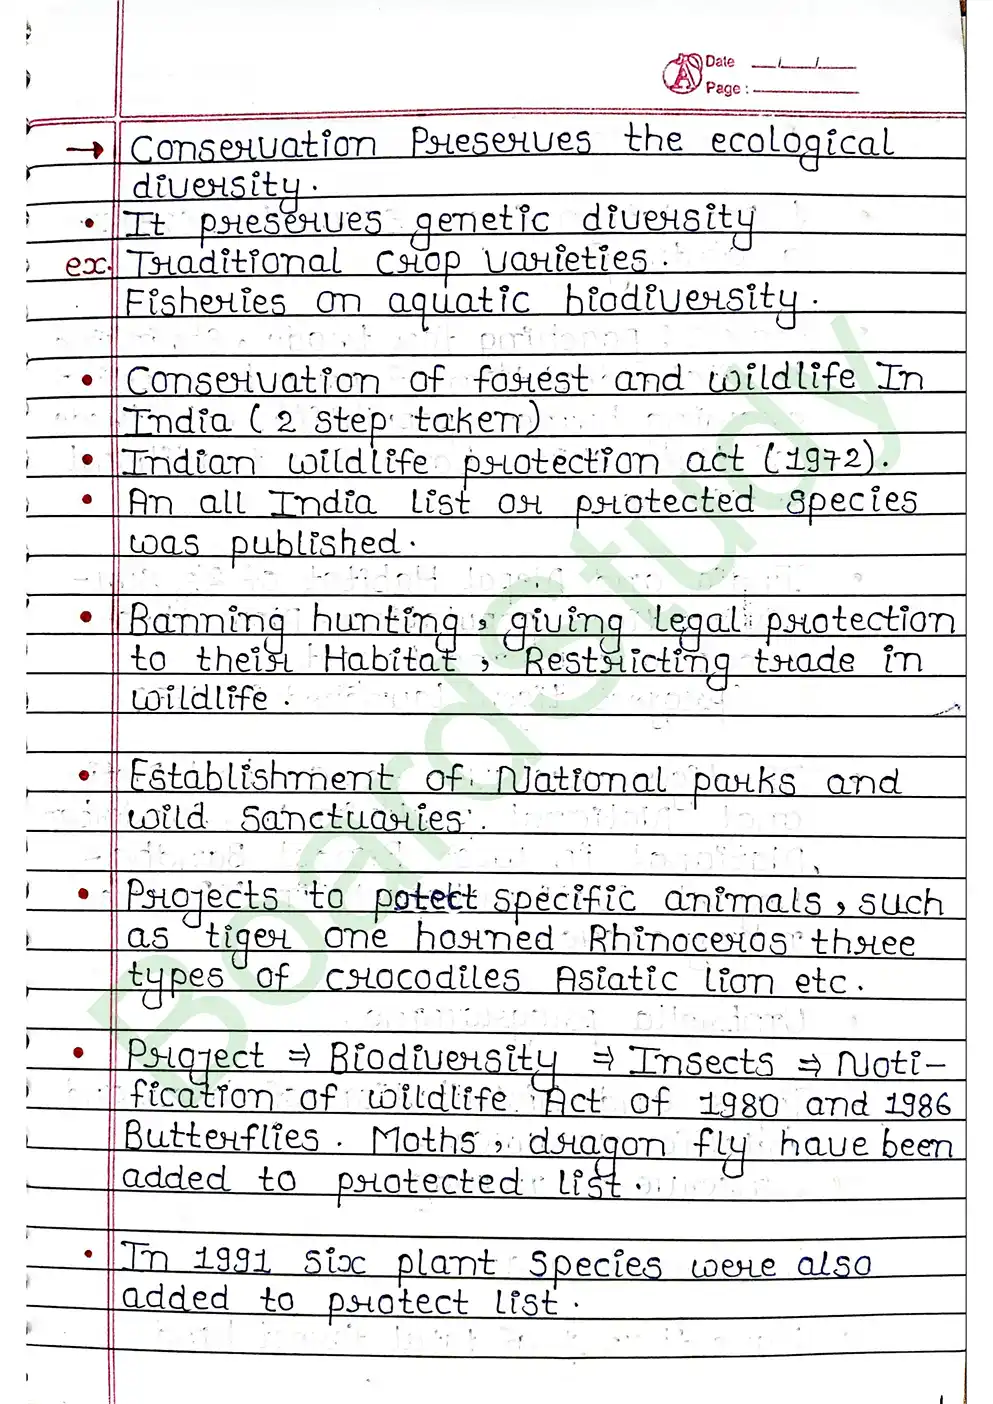 Date __/__/__
Page :
→ Conservation Preserves the ecological
diversity.
• It preserves genetic diversity
ex. Traditional crop varieties.
Fisheries on aquatic biodiversity.
• Conservation of forest and wildlife In
India (2 step taken)
• Indian wildlife protection act (1972).
• An all India list or protected species
was published.
• Banning hunting, giving legal protection
to their Habitat, Restricting trade in
wildlife.
• Establishment of National parks and
wild sanctuaries.
• Projects to potect specific animals, such
as tiger one horned Rhinoceros three
types of crocodiles Asiatic lion etc.
• Project ⇒ Biodiversity ⇒ Insects ⇒ Noti-
fication of wildlife Act of 1980 and 1986
Butterflies. Moths, dragon fly have been
added to protected list.
• In 1991 six plant species were also
added to protect list.
BoardStudy